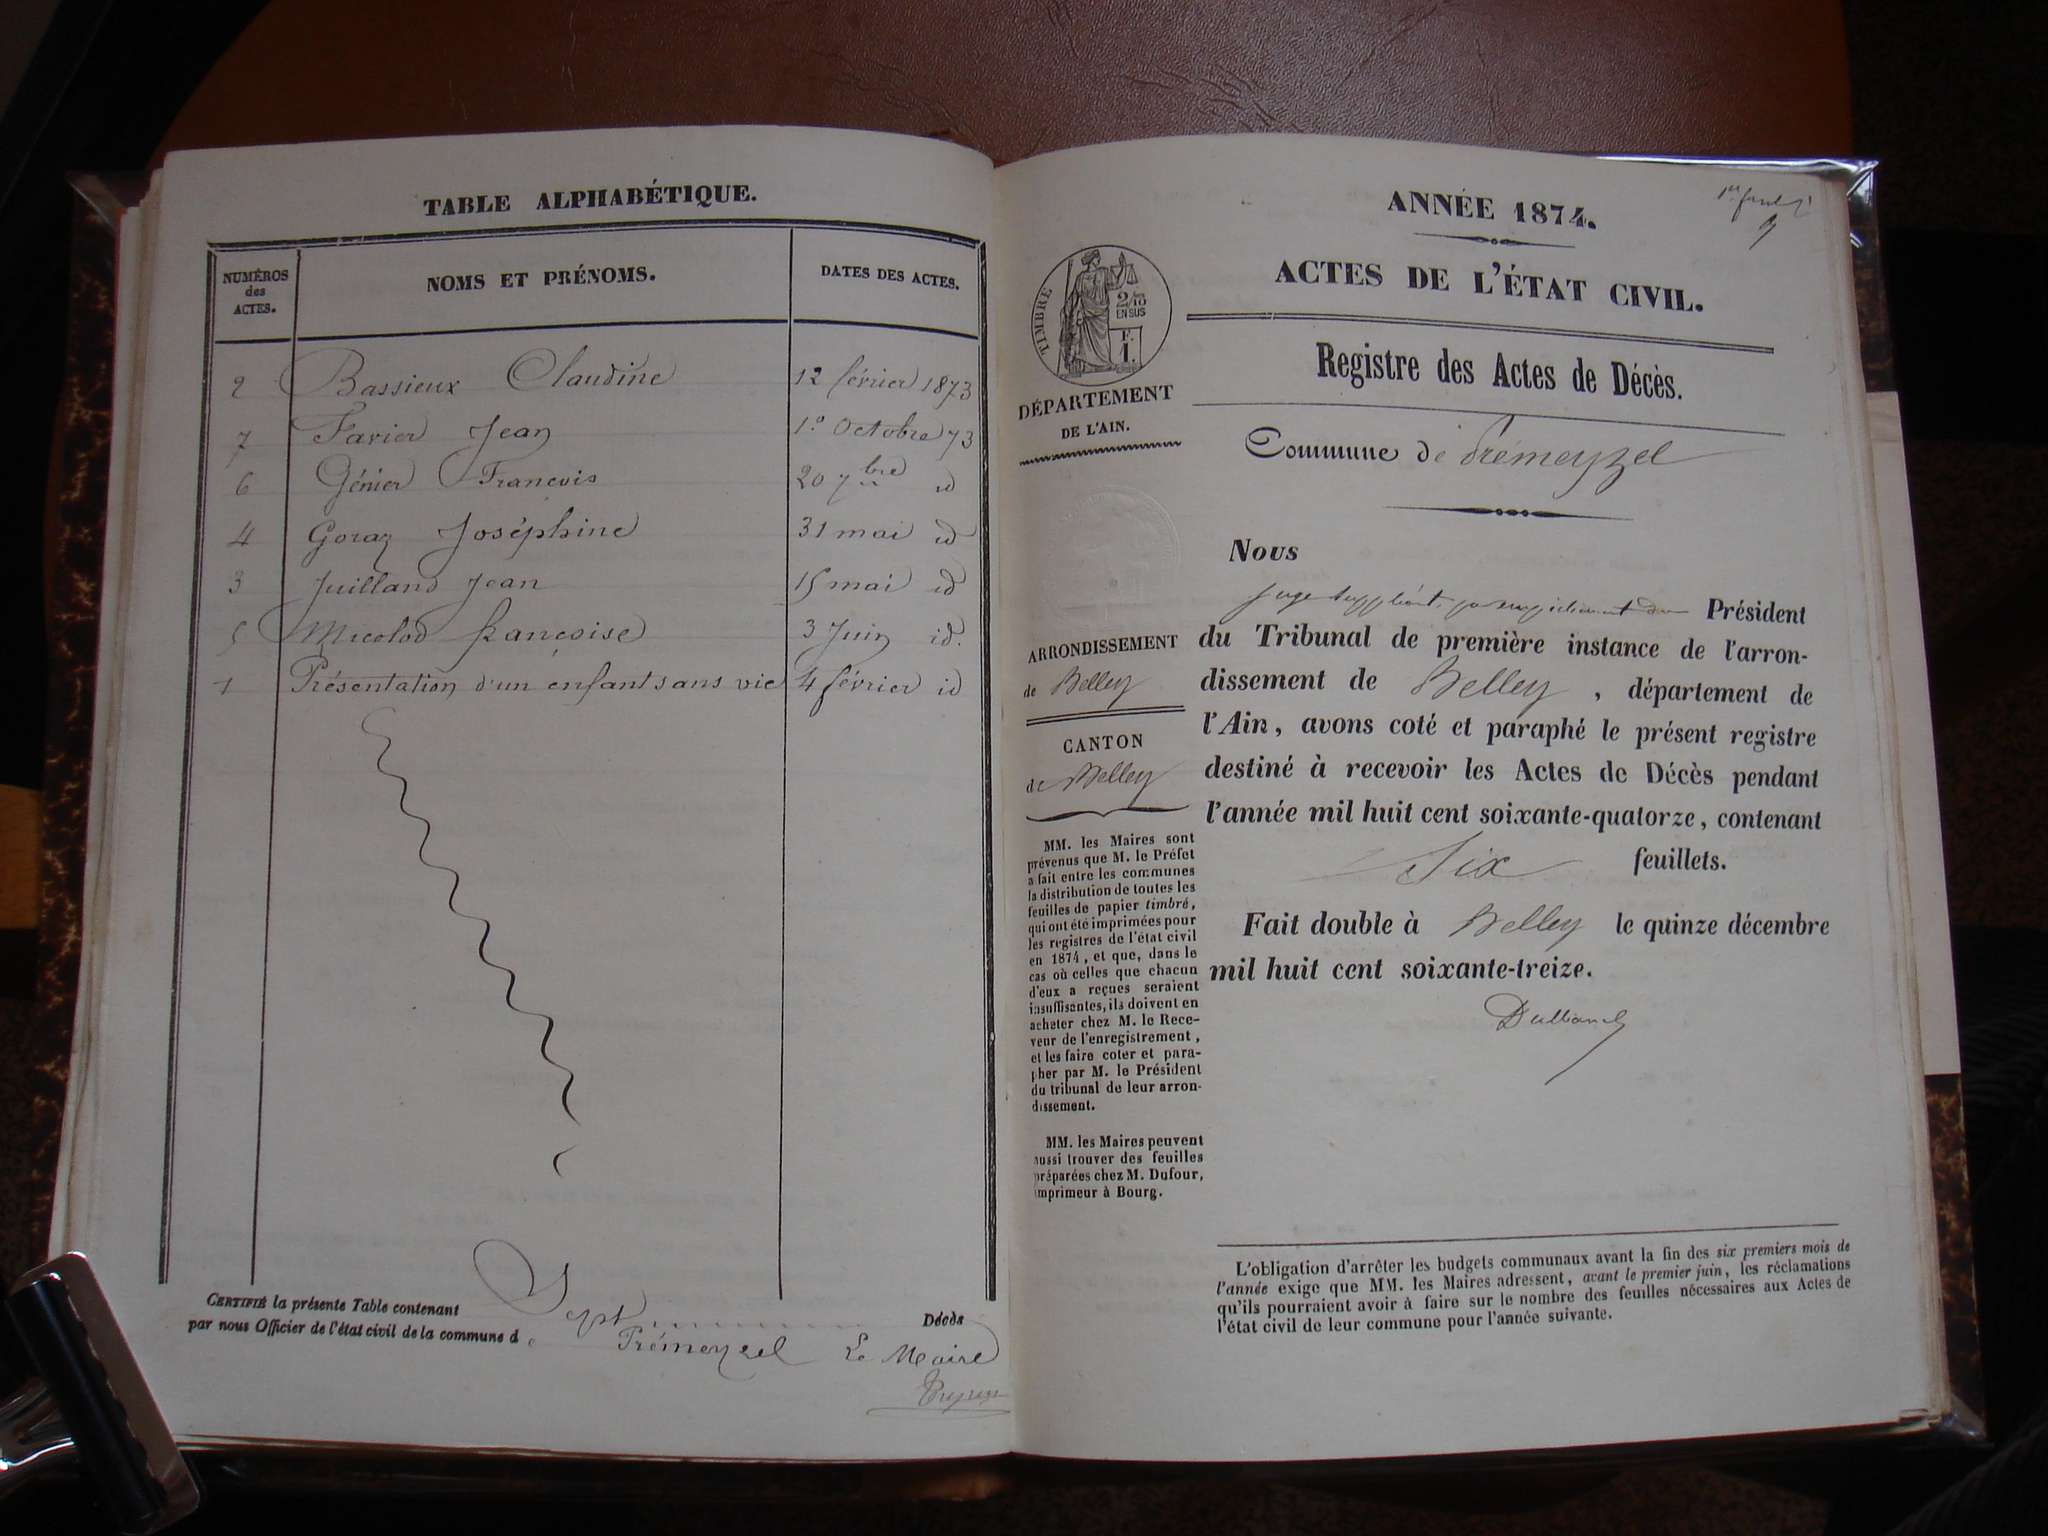 TABLE ALPHABÉTIQUE.
NUMÉROS
des
ACTES.
NOMS ET PRÉNOMS.
DATES DES ACTES.
2 Bassieux Claudine 12 février 1873
7 Favier Jean 1º Octobre 73
6 Génier François 20 7bre id
4 Goraz Joséphine 31 mai id
3 Juilland Jean 15 mai id
5 Micolod françoise 3 Juin id.
1 Présentation d'un enfant sans vie 4 février id
CERTIFIÉ la présente Table contenant Sept Décès
par nous Officier de l'état civil de la commune de Prémeyzel Le Maire
ANNÉE 1874.
ACTES DE L'ÉTAT CIVIL.
TIMBRE
2/10
EN SUS
F.
1.
DÉPARTEMENT
DE L'AIN.
Registre des Actes de Décès.
Commune de Prémeyzel
ARRONDISSEMENT
de Belley
CANTON
de Belley
MM. les Maires sont
prévenus que M. le Préfet
a fait entre les communes
la distribution de toutes les
feuilles de papier timbré,
qui ont été imprimées pour
les registres de l'état civil
en 1874, et que, dans le
cas où celles que chacun
d'eux a reçues seraient
insuffisantes, ils doivent en
acheter chez M. le Rece-
veur de l'enregistrement,
et les faire coter et para-
pher par M. le Président
du tribunal de leur arron-
dissement.
MM. les Maires peuvent
aussi trouver des feuilles
préparées chez M. Dufour,
imprimeur à Bourg.
Nous
Juge suppléant, par empêchement du Président
du Tribunal de première instance de l'arron-
dissement de Belley, département de
l'Ain, avons coté et paraphé le présent registre
destiné à recevoir les Actes de Décès pendant
l'année mil huit cent soixante-quatorze, contenant
Six feuillets.
Fait double à Belley le quinze décembre
mil huit cent soixante-treize.
L'obligation d'arrêter les budgets communaux avant la fin des six premiers mois de
l'année exige que MM. les Maires adressent, avant le premier juin, les réclamations
qu'ils pourraient avoir à faire sur le nombre des feuilles nécessaires aux Actes de
l'état civil de leur commune pour l'année suivante.